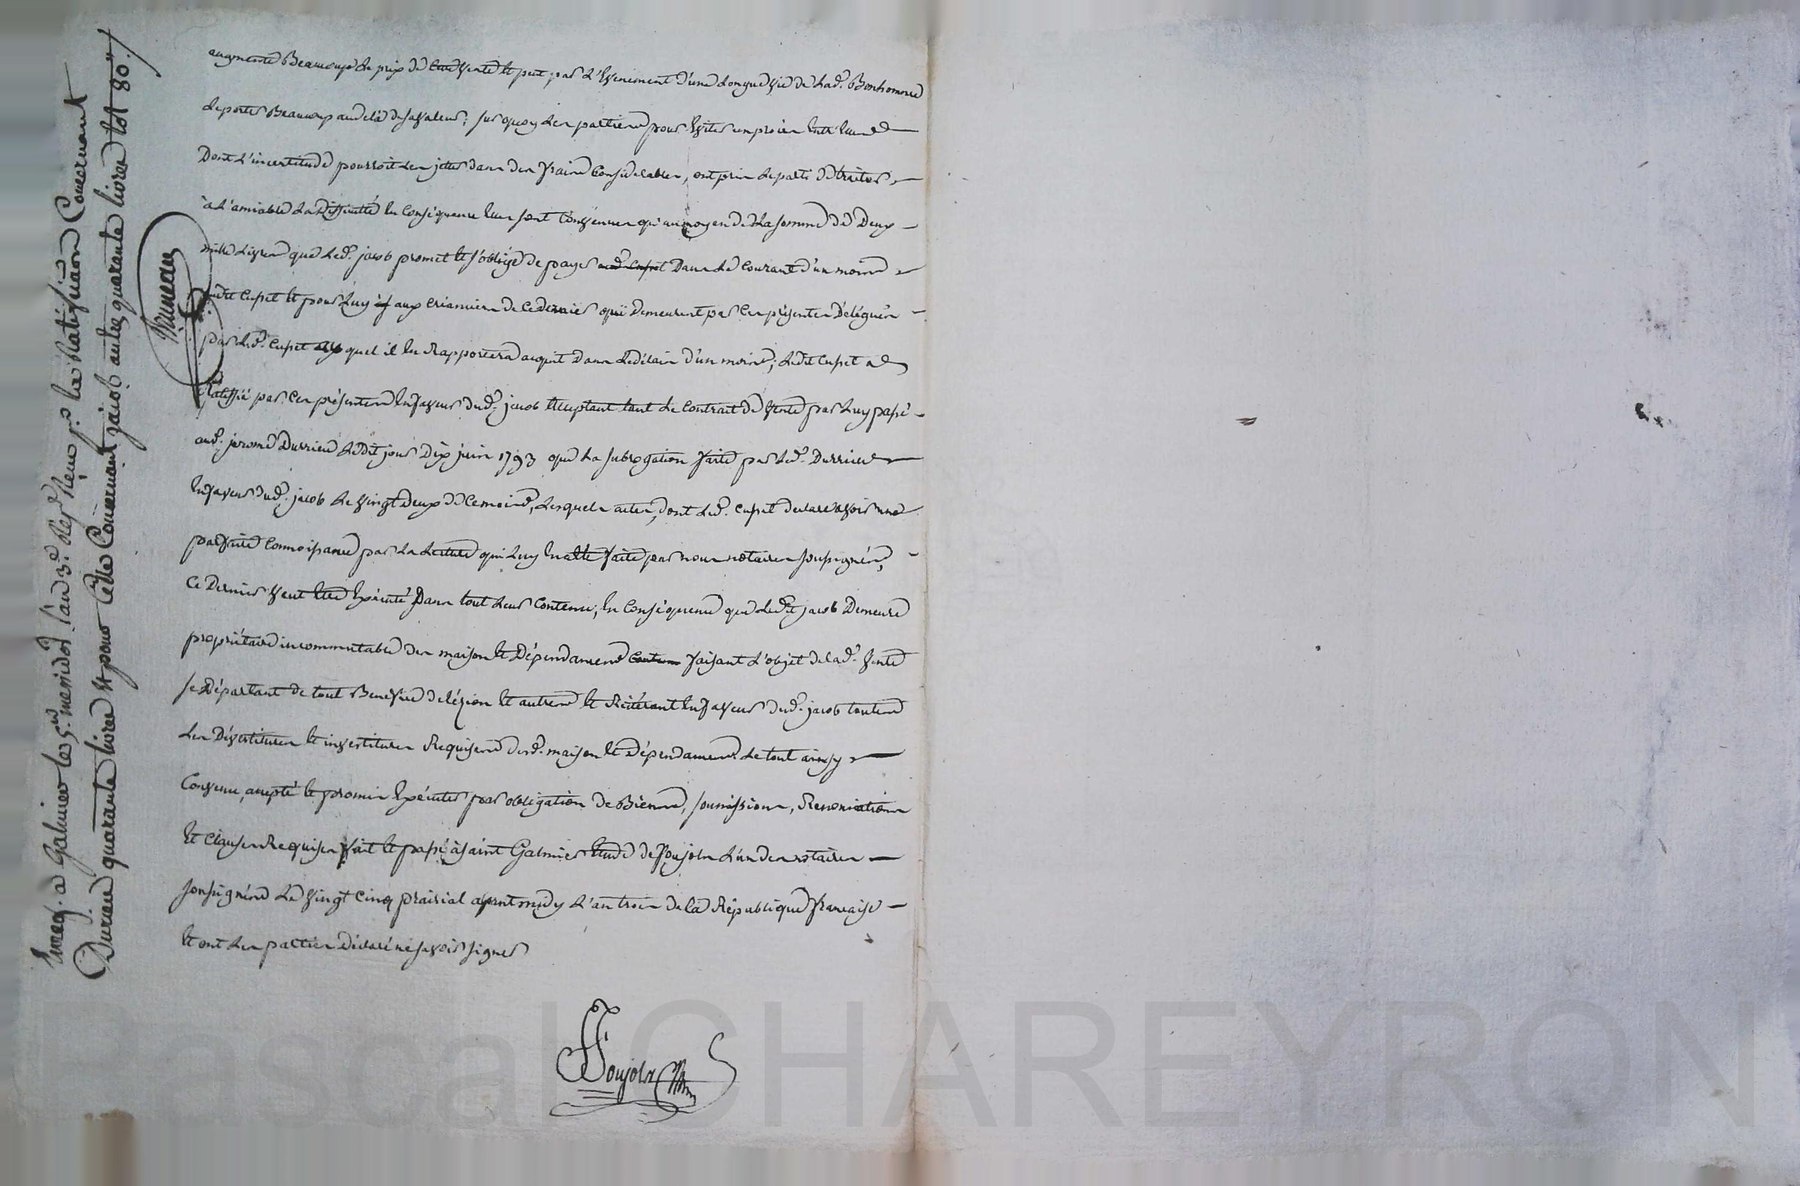 augmenté Beaucoup le prix de cette vente et peut, par l'Evenement d'une longue vie de lad.e Bonhomme
le porter Beaucoup audela de sa valeur; sur quoy les parties pour Eviter un procès Entr'Eux
Dont l'incertitude pourroit les jetter dans des fraix Considerables, ont pris le parti de traiter
à l'amiable la Difficulté En Conséquence Elles sont Convenues qu'au moyen de la somme de Deux
mille Livres que led.t jacob promet et s'oblige de payer Dans Le Courant d'un mois
audit Cupet et pour Luy aux Créanciers de ce dernier qui Demeurent par Ces présentes Délégués
par led.t Cupet quel il En Rapportera acquit Dans Ledelais d'un mois; Ledit Cupet a
Ratiffié par Ces présentes En faveur dud.t jacob acceptant tant Le Contrat de Vente par Luy passé
aud.t jerome Durrieu Ledit jour Dix juin 1793 que La subrogation faite par led.t Durrieu
En faveur dud.t jacob Le vingt Deux de Ce mois, desquels actes, dont led.t Cupet declare avoir une
parfaite Connoissance par La Lecture qui Luy En a Eté faite par nous notaires soussignés,
Ce Dernier veut Etre Exécuté Dans tout Leur Contenu; En Conséquence que Ledit jacob Demeure
propriétaire incommutable des maison et Dépendances faisant L'objet de lad.e Vente
se Départant de tout Benefice de lézion et autres et Réitérant En faveur dud.t jacob toutes
Les Dévetitures et investitures Requises desd.t maison et dépendances Le tout ainsy
Convenu, accepté et promis Exécuter par obligation de Biens, soumissions, Renonciations
Et Clauses Requises fait et passé à saint Galmier Etude de Poujols L'un des notaires
soussignés Le vingt Cinq prairial avant midy L'an trois de la République française
Et ont Les parties Déclaré ne savoir signer
Poujols
Enreg. a Galmier le 5.me messidor l'an 3.e Reçu p.r la Ratification Concernant
Durrieu quarante livres Et pour Celle Concernant jacob autre quarante livres tot 80.